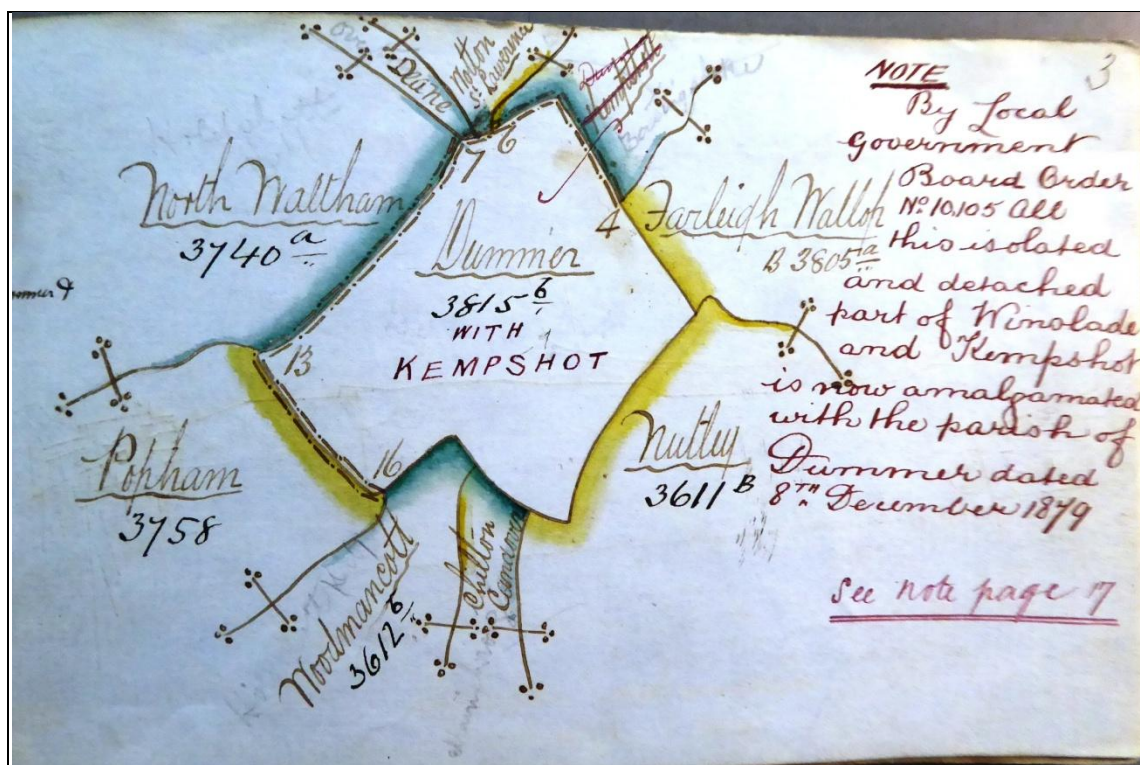 3
NOTE
By Local
Government
Board Order
No 10,105 All
this isolated
and detached
part of Winslade
and Kempshot
is now amalgamated
with the parish of
Dummer dated
8TH December 1879
See note page 17
Deane
Notton
St Lawrence
North Waltham
3740 a
7
6
4
Farleigh Wallop
B 3805 a
Dummer
3815 b
WITH
KEMPSHOT
13
16
Popham
3758
Nutley
3611 B
Woodmancott
3612 b
Chilton
Candover